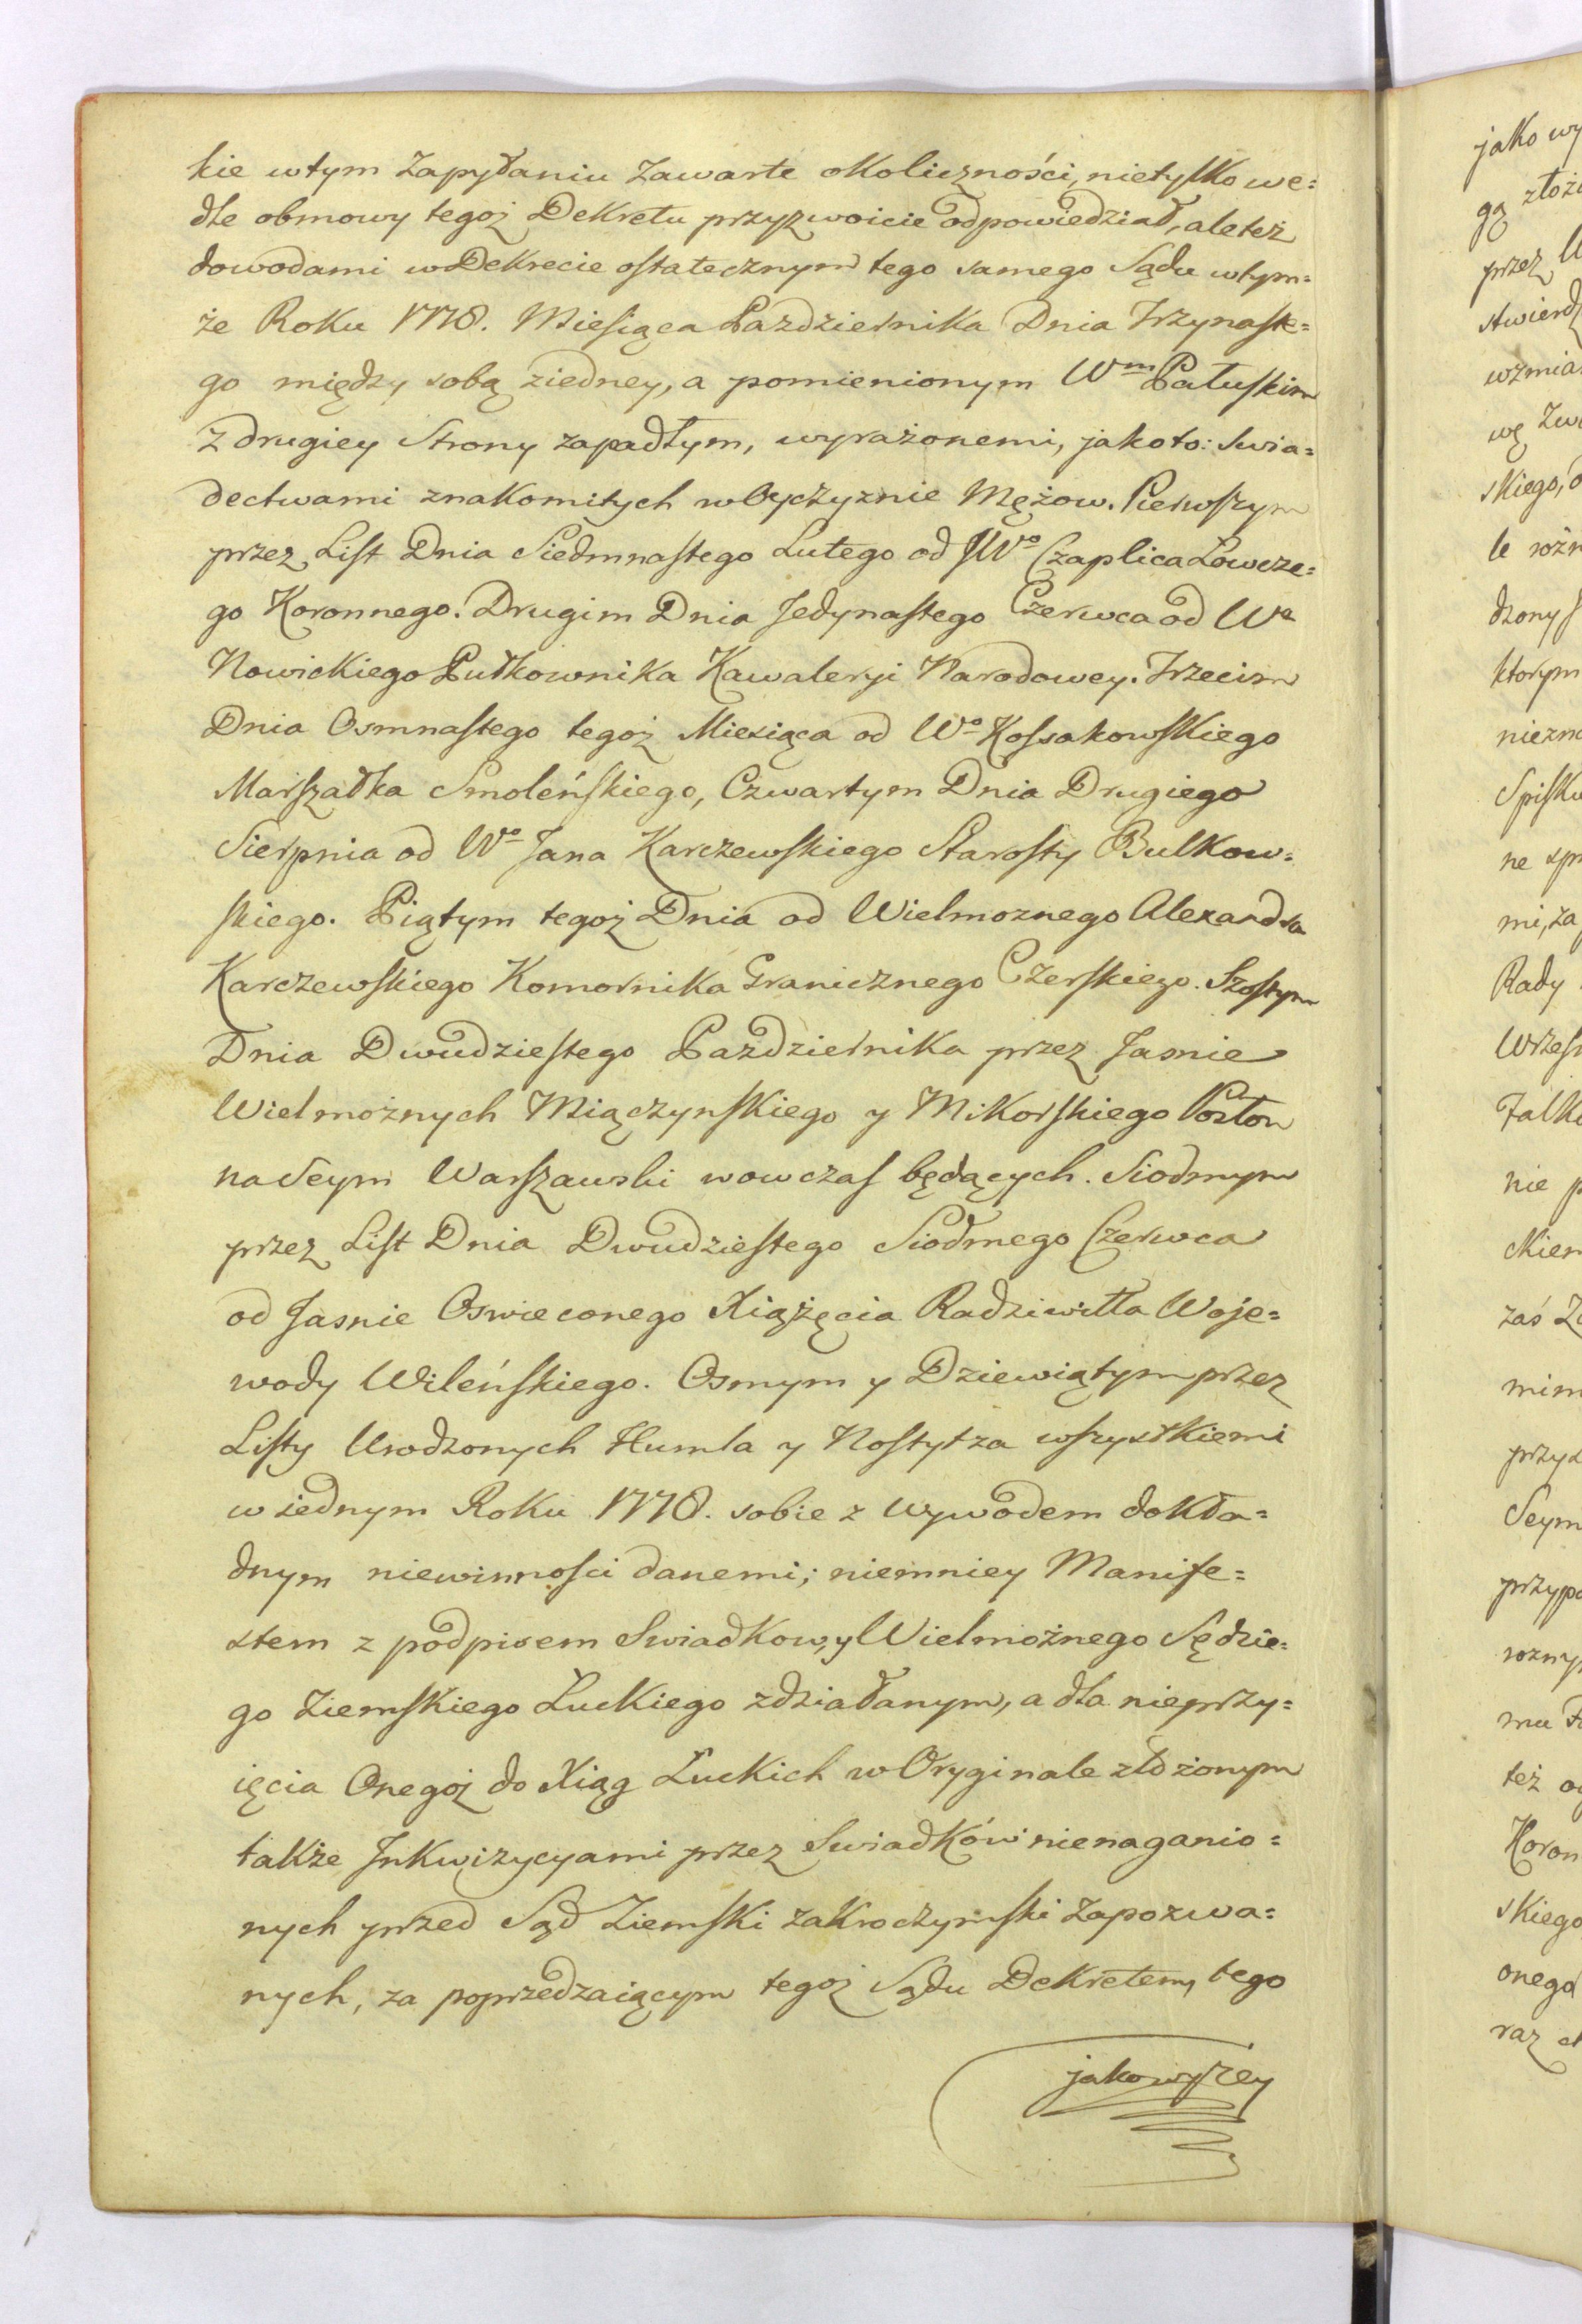 kie wtym Zapytaniu Zawarte okoliczności, nietylko we=
dle obmowy tegoż Dekretu przyzwoicie odpowiedział, ale też
dowodami w Dekrecie ostatecznym tego samego Sądu wtym=
że Roku 1778. Miesiąca Pazdziernika Dnia Trzynaste=
go między sobą ziedney, a pomienionym Wm Pałuskim
z drugiey Strony zapadłym, wyrażonemi, jakoto: Swia=
dectwami znakomitych w Oyczyznie Mężow. Pierwszym
przez List Dnia Siedmnastego Lutego od JWo Czaplica Łowcze=
go Koronnego. Drugim Dnia Jedynastego Czerwca od Wo
Nowickiego Pułkownika Kawaleryi Narodowey. Trzecim
Dnia Osmnastego tegoż Miesiąca od Wo Kossakowskiego
Marszałka Smoleńskiego, Czwartym Dnia Drugiego
Sierpnia od Wo Jana Karczewskiego Starosty Bulkow=
skiego. Piątym tegoż Dnia od Wielmoznego Alexandra
Karczewskiego Komornika Granicznego Czerskiego. Szostym
Dnia Dwudziestego Pazdziernika przez Jasnie
Wielmożnych Miączynskiego y Mikorskiego Posłow
na Seym Warszawski wowczas będących. Siodmym
przez List Dnia Dwudziestego Siodmego Czerwca
od Jasnie Oswieconego Xiążęcia Radziwiłła Woje=
wody Wileńskiego. Osmym y Dziewiątym przez
Listy Urodzonych Humla y Nostytza wszystkiemi
w iednym Roku 1778. sobie z wywodem dokła=
dnym niewinnosci danemi; niemniey Manife=
stem z podpisem Swiadkow, y Wielmożnego Sędzie=
go Ziemskiego Łuckiego zdziałanym, a dla nieprzy=
ięcia Onegoż do Xiąg Łuckich w Oryginale złożonym
także Jnkwizycyami przez Swiadków nienaganio=
nych przed Sąd Ziemski Zakroczymski Zapozwa=
nych, za poprzedzaiącym tegoż Sądu Dekretem, tego
jakowyzey
jako wy
gą złoż
przez
stwierdz
wzmia
wę
skiego,
le rożn
dzony
ktorym
niezna
Spisku
ne
mi, za
Rady
Wrześ
nie
ckiem
zaś
mim
przys
Seym
przypo
rozny
też
Koron
skiego
onego
raz